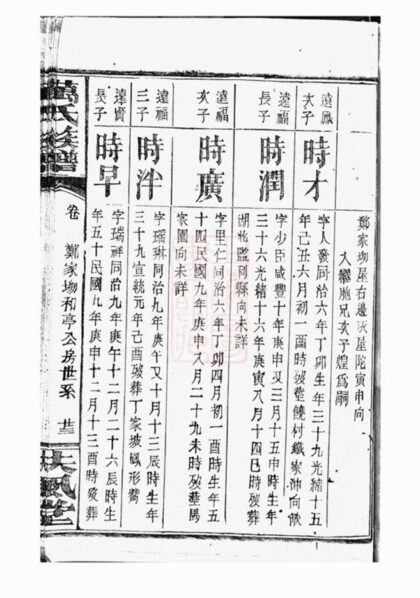 鄭家坳屋右邊灰屋陀寅申向
入繼胞兄次子煌爲嗣
遠鳳
次子
時才
字人發同治六年丁卯生年三十九光緒十五
年己丑六月初一酉時歿塟饒村鐵家沖向俱
遠福
長子
時潤
字少臣咸豐十年庚申又三月十五申時生年
三十六光緒十六年庚寅八月十四巳時歿塟
湖北監利縣向未詳
遠福
次子
時廣
字里仁同治六年丁卯四月初一酉時生年五
十四民國九年庚申八月二十九未時歿塟馬
家園向未詳
遠福
三子
時泮
字瑤琳同治九年庚午又十月十三辰時生年
三十九宣統元年己酉歿葬丁家坡鳳形嘴
遠賢
長子
時早
字瑞祥同治九年庚午十二月二十六辰時生
年五十民國九年庚申十二月十三酉時歿葬
萬氏族譜
卷
鄭家坳和亭公房世系
廿三
扶風堂